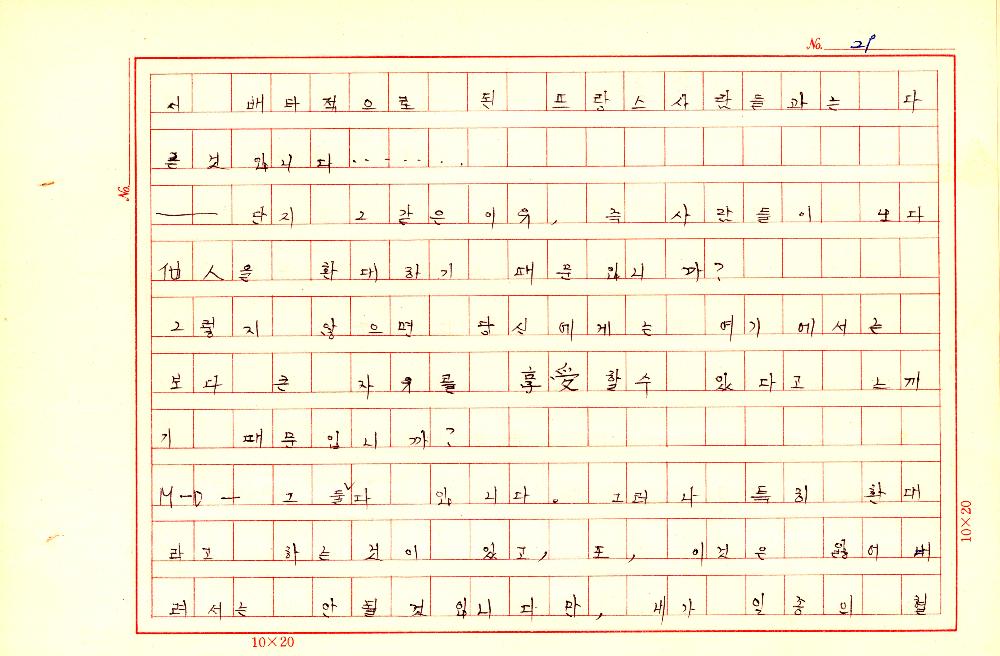 No. 21
서 배타적으로 된 프랑스사람들과는 다
른것 입니다.......
── 단지 그 같은 이유, 즉 사람들이 보다
他人을 환대하기 때문입니까?
그렇지 않으면 당신에게는 여기에서는
보다 큰 자유를 享受할수 있다고 느끼
기 때문입니까?
M-D- 그 둘다 입니다. 그러나 특히 환대
라고 하는것이 있고, 또, 이것은 잃어 버
려서는 안될것입니다만, 내가 일종의 혈
No.
10×20
10×20